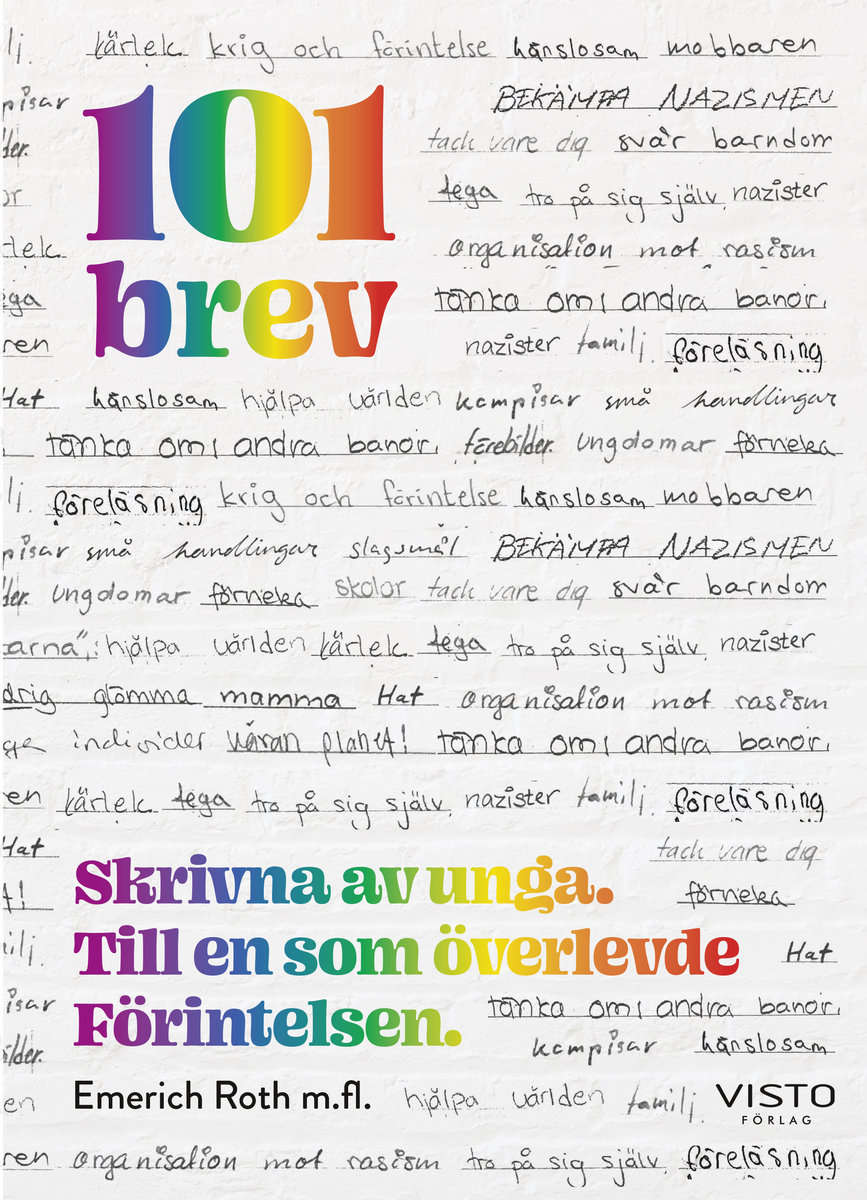 lj. kärlek krig och förintelse hänslosam mobbaren
101
pisar BEKÄMPA NAZISMEN
der. tack vare dig svår barndom
or tega tro på sig själv nazister
rlek organisation mot rasism
brev
ega tänka om i andra banor.
ren nazister familj. föreläsning
Hat hänslosam hjälpa världen kompisar små handlingar
tänka om i andra banor. förebilder. Ungdomar förneka
lj. föreläsning krig och förintelse hänslosam mobbaren
pisar små handlingar slagsmål BEKÄMPA NAZISMEN
der. Ungdomar förneka skolor tack vare dig svår barndom
arna", : hjälpa världen kärlek tega tro på sig själv nazister
drig glömma mamma Hat organisation mot rasism
ga individer våran planet! tänka om i andra banor.
en kärlek tega tro på sig själv nazister familj. föreläsning
Hat tack vare dig
Skrivna av unga.
t! förneka
Till en som överlevde
ilj. Hat
isar tänka om i andra banor.
Förintelsen.
ilder. kompisar hänslosam
Emerich Roth m.fl.
en hjälpa världen familj. VISTO
FÖRLAG
ren organisation mot rasism tro på sig själv föreläsning